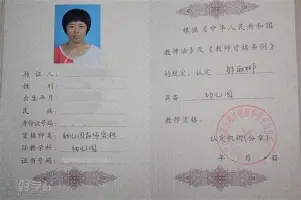 持证人：
性别：
出生年月：
民族：
身份证号码：
资格种类：幼儿园教师资格
任教学科：幼儿园
证书号码：
根据《中华人民共和国
教师法》及《教师资格条例》
的规定，认定
具备 幼儿园
教师资格。
认定机构（公章）
年 月 日
好学心